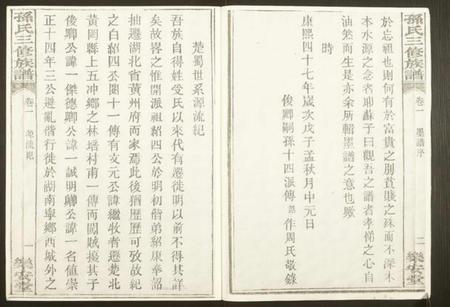 於忘祖也則何有於富貴之別貧賤之殊而不深木
本水源之念者耶蘇子曰觀吾之譜者孝悌之心自
油然而生是亦余所輯墨譜之意也歟
時
康熙四十七年歲次戊子孟秋月中元日
俊卿嗣孫十四派傳喆作周氏敬錄
孫氏三修族譜
卷一 墨譜序
二
樂安堂
楚蜀世系源流紀
吾族自得姓受氏以來代有遷徙明以前不得其詳
矣故畧之惟開派祖紹四公於明初偕弟紹康華韶
抽遷湖北省黃州府而家焉此後猶歷歷可攷故紀
之自紹四公閱十一傳有文元公諱繼牧者遷楚北
黃岡縣上五冲鄉之林塝村甫一傳而闖賊擾其子
俊卿公諱一傑德卿公諱一誠明卿公諱一名值崇
正十四年三公避亂偕行徙於湖南寧鄉西城外之
孫氏三修族譜
卷一 源流紀
一
樂安堂